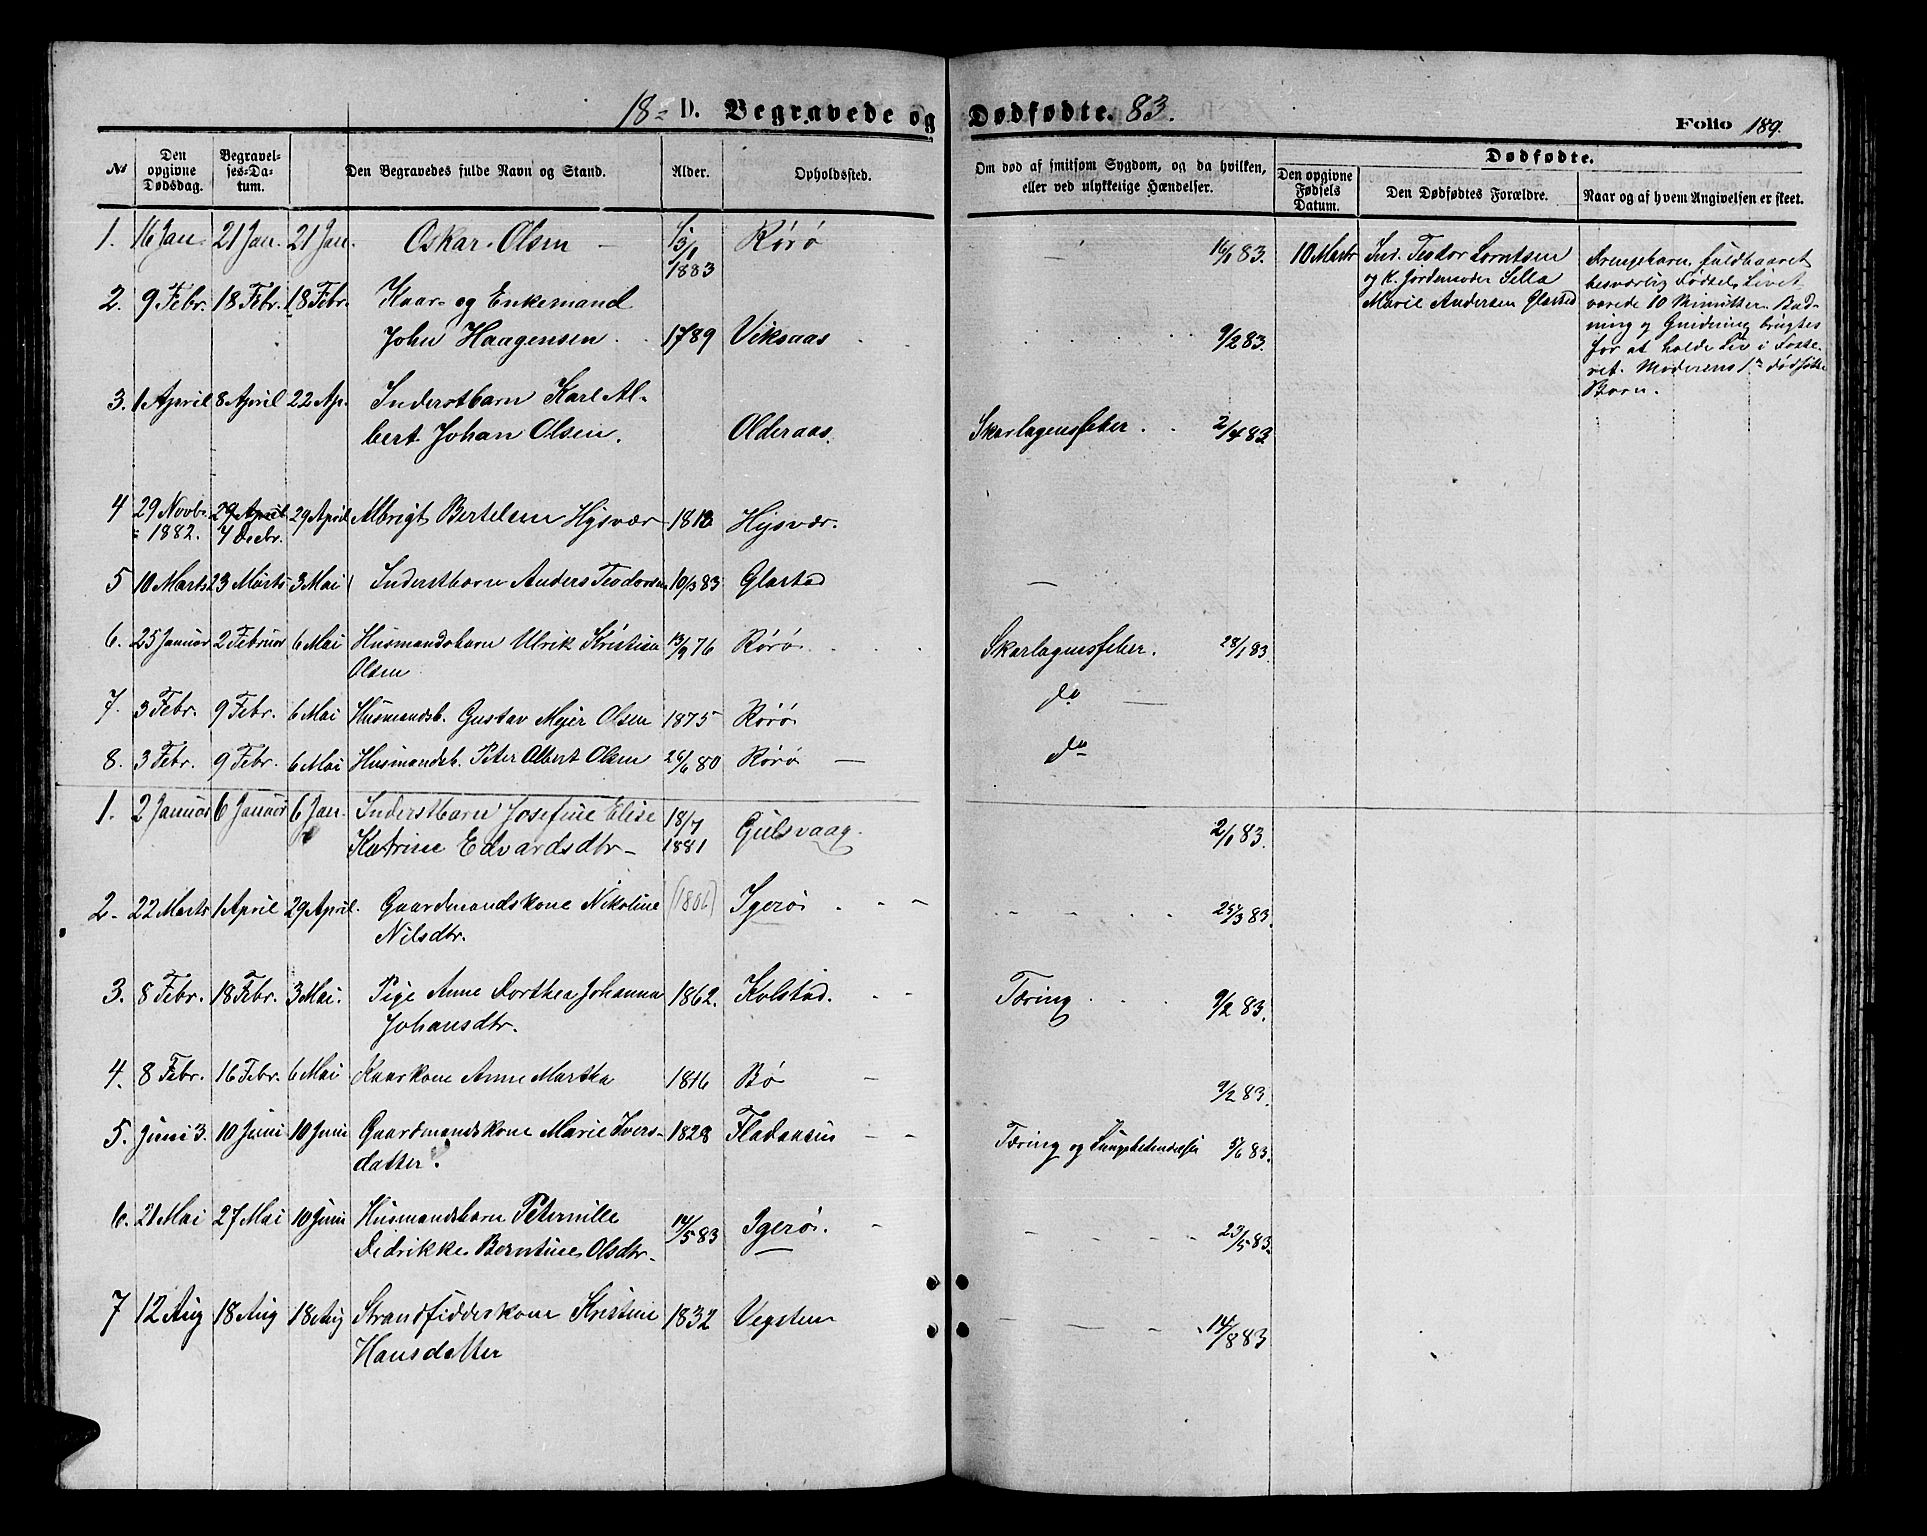 18- D. Begravede og Dødfødte. 83.
Folio 189.
№ Den opgivne Dødsdag. Begravelses-Datum. Den Begravedes fulde Navn og Stand. Alder. Opholdssted. Om død af smitsom Sygdom, og da hvilken, eller ved ulykkelige Hændelser. Dødfødte.
Den opgivne Fødsels Datum. Den Dødfødtes Forældre. Naar og af hvem Angivelsen er skeet.
1. 16 Jan. 21 Jan. 21 Jan. Oskar Olsen 1883 Rørø 16/1 83. 10 Marts
Ind. Teodor Lorntsen
og K. Jordemoder
Marie Andersen Glastad
Drengebarn, fuldbaaret
besværlig Fødsel, Livet
varede 10 Minutter. Bad-
ning og Gnidning brugtes
for at holde Liv i Foste-
ret. Moderens 1ste dødfødte
Barn.
2. 9 Febr. 18 Febr. 18 Febr. Kaar- og Enkemand
John Haagensen 1789 Viksaas 9/2 83.
3. 1 April 8 April 22 Ap. Inderstbarn Karl Al-
bert Johan Olsen. Olderaas. Skarlagensfeber. 2/4 83
4 29 Novbr. 29 April 29 April Albrigt Bertelsen Hysvær 1818 Hysvær.
1882. 7 Decbr.
5 10 Marts 23 Marts 3 Mai Inderstbarn Anders Teodorsen 10/3 83 Glastad
6. 25 Januar 2 Februar 6 Mai Husmandsbarn Ulrik Kristian 13/9 76 Rørø. Skarlagensfeber. 28/1 83.
Olsen
7. 3 Febr. 9 Febr. 6 Mai Husmandsb. Gustav Mejer Olsen 1875 Rørø do
8. 3 Febr. 9 Febr. 6 Mai Husmandsb. Peter Albert Olsen 26/6 80 Rørø do
1. 2 Januar 6 Januar 6 Jan. Inderstbarn Josefine Elise 18/7
Katrine Edvardsdtr 1881 Gulsvaag. 2/1 83.
2. 22 Marts 1 April 29 April. Gaardmandskone Nikoline (1806) Igerø 25/3 83.
Nilsdtr.
3. 8 Febr. 18 Febr. 3 Mai. Pige Anne Dorthea Johanna 1862. Kolstad. Tæring 9/2 83.
Johansdtr.
4. 8 Febr. 16 Febr. 6 Mai Kaarkone Anne Martha 1816 Bø 9/2 83.
5. Juni 3. 10 Juni 10 Juni Gaardmandskone Marie Ivers- 1828 Fladansen Tæring og Lungebetændelse 5/6 83.
datter.
6. 21 Mai 27 Mai 10 Juni Husmandsbarn Peternille 14/5 83 Igerø. 23/5 83.
Didrikke Berntine Olsdtr.
7 12 Aug 18 Aug 18 Aug Strandsidderskone Kristine 1832 Vegsten 14/8 83
Hansdatter